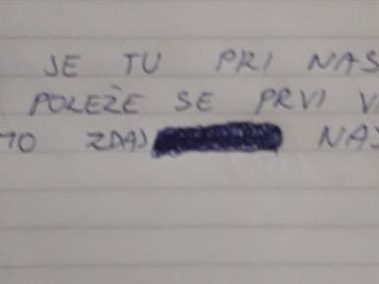 JE TU PRI NAS
POLEŽE SE PRVI V
MO ZDAJ NAJ